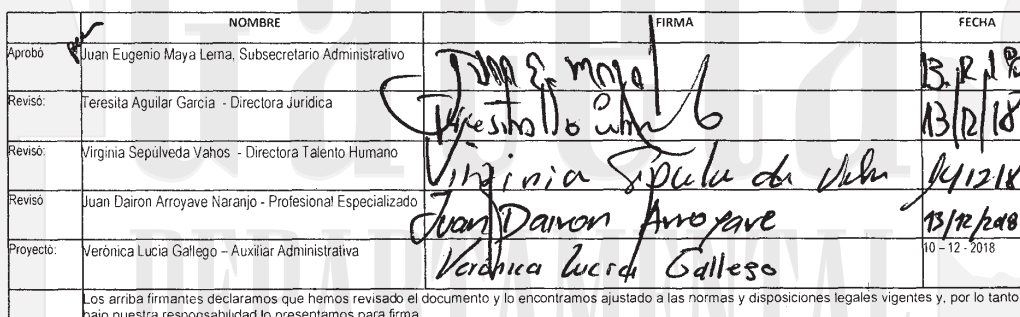 NOMBRE FIRMA FECHA
Aprobó Juan Eugenio Maya Lema, Subsecretario Administrativo Juan E. Maya
Revisó: Teresita Aguilar Garcia - Directora Jurídica Teresita 13/12/18
Revisó: Virginia Sepúlveda Vahos - Directora Talento Humano Virginia 14/12/18
Revisó Juan Dairon Arroyave Naranjo - Profesional Especializado Juan Dairon Arroyave 13/12/2018
Proyectó: Verónica Lucia Gallego – Auxiliar Administrativa Verónica Lucia Gallego 10 – 12 - 2018
Los arriba firmantes declaramos que hemos revisado el documento y lo encontramos ajustado a las normas y disposiciones legales vigentes y, por lo tanto,
bajo nuestra responsabilidad lo presentamos para firma
DEPARTAMENTAL